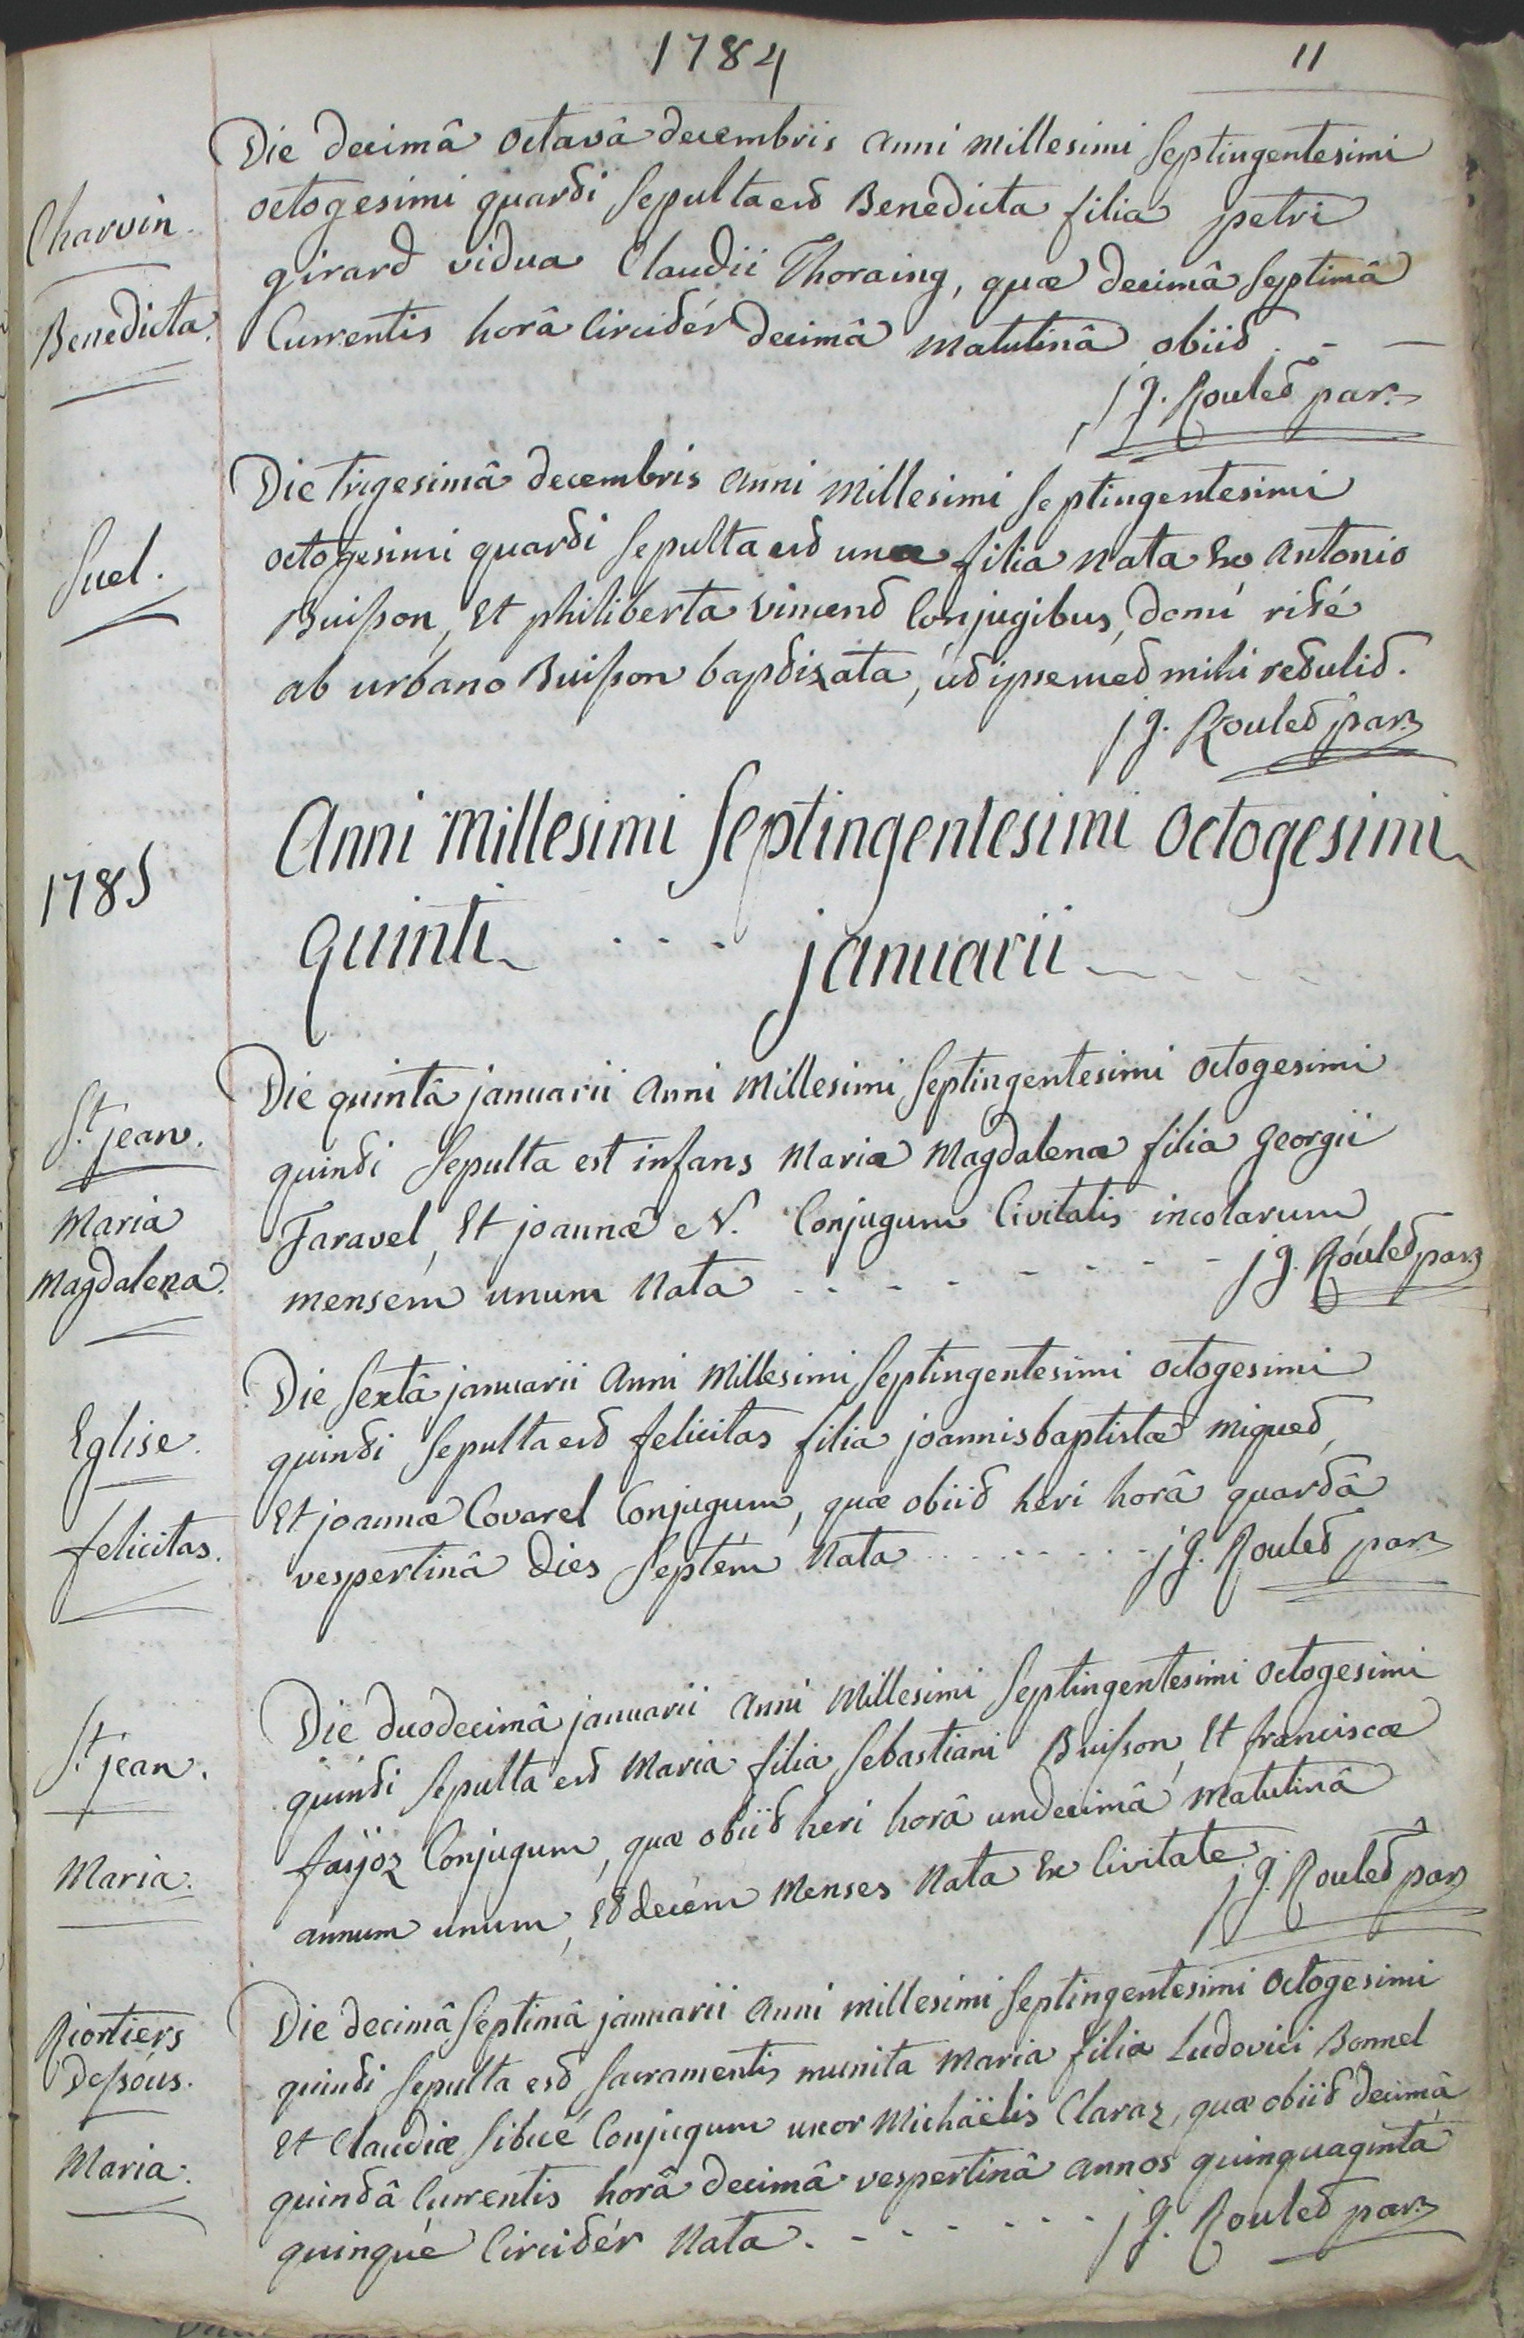 1784 11
Die decimâ octavâ decembris anni millesimi septingentesimi
Charvin.
octogesimi quarti sepulta est Benedicta filia petri
girard vidua Claudii Thoraing, quæ decimâ septimâ
Benedicta.
Currentis horâ Circitér decimâ matutinâ obiit. - -
j g. Roulet par.
Die trigesimâ decembris anni millesimi septingentesimi
Suel.
octogesimi quarti sepulta est una filia nata Ex antonio
Buisson, Et philiberta vincend Conjugibus, domi rité
ab urbano Buisson baptizata, út ipsemet mihi retulit.
j g. Roulet par.
1785
Anni millesimi septingentesimi octogesimi
quinti - - - januarii
Die quintâ januarii anni millesimi septingentesimi octogesimi
St. jean.
quinti sepulta est infans Maria Magdalena filia georgii
Maria
Taravel, Et joannæ N. Conjugum Civitatis incolarum,
Magdalena.
mensém unum nata - - - - - - j g. Roulet par.
Die sextâ januarii anni millesimi septingentesimi octogesimi
Eglise.
quinti sepulta est felicitas filia joannisbaptistæ miguet,
Et joannæ Covarel Conjugum, quæ obiit heri horâ quartâ
felicitas.
vespertinâ dies septém nata - - - - - - j g. Roulet par.
Die duodecimâ januarii anni millesimi septingentesimi octogesimi
St. jean.
quinti sepulta est Maria filia Sebastiani Buisson, Et franciscæ
faijoz Conjugum, quæ obiit heri horâ undecimâ matutinâ
Maria.
annum unum, Et decém menses nata Ex Civitate
j g. Roulet par.
Die decimâ septimâ januarii anni millesimi septingentesimi octogesimi
Riortiers
dessóus.
quinti sepulta est sacramentis munita Maria filia Ludovici Bonnel
Et Claudiæ Sibué Conjugum uxor Michäelis Claraz, quæ obiit decimâ
Maria.
quintâ Currentis horâ decimâ vespertinâ annos quinquaginta
quinqué Circitér nata. - - - - - - j g. Roulet par.